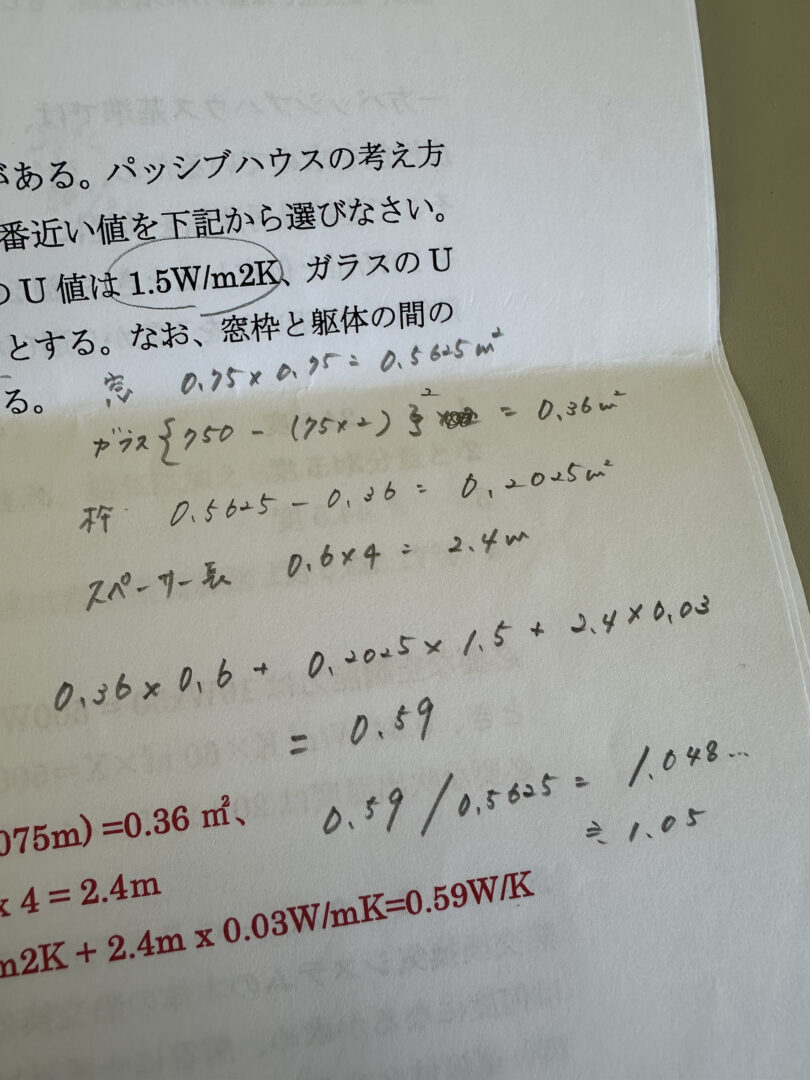 がある。パッシブハウスの考え方
番近い値を下記から選びなさい。
の U 値は 1.5W/m2K、ガラスの U
とする。なお、窓枠と躯体の間の
る。
窓 0.75 × 0.75 = 0.5625 m²
ガラス {750 - (75×2)}² = 0.36 m²
枠 0.5625 - 0.36 = 0.2025 m²
スペーサー長 0.6 × 4 = 2.4 m
0.36 × 0.6 + 0.2025 × 1.5 + 2.4 × 0.03
= 0.59
0.59 / 0.5625 = 1.048…
≒ 1.05
075m) =0.36 ㎡、
x 4 = 2.4m
m2K + 2.4m x 0.03W/mK=0.59W/K